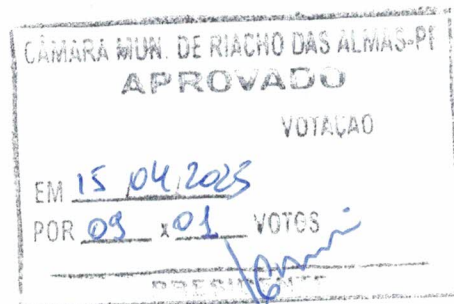 CÂMARA MUN. DE RIACHO DAS ALMAS-PE
APROVADO
VOTAÇÃO
EM 15/04/2025
POR 09 x 01 VOTOS
PRESIDENTE